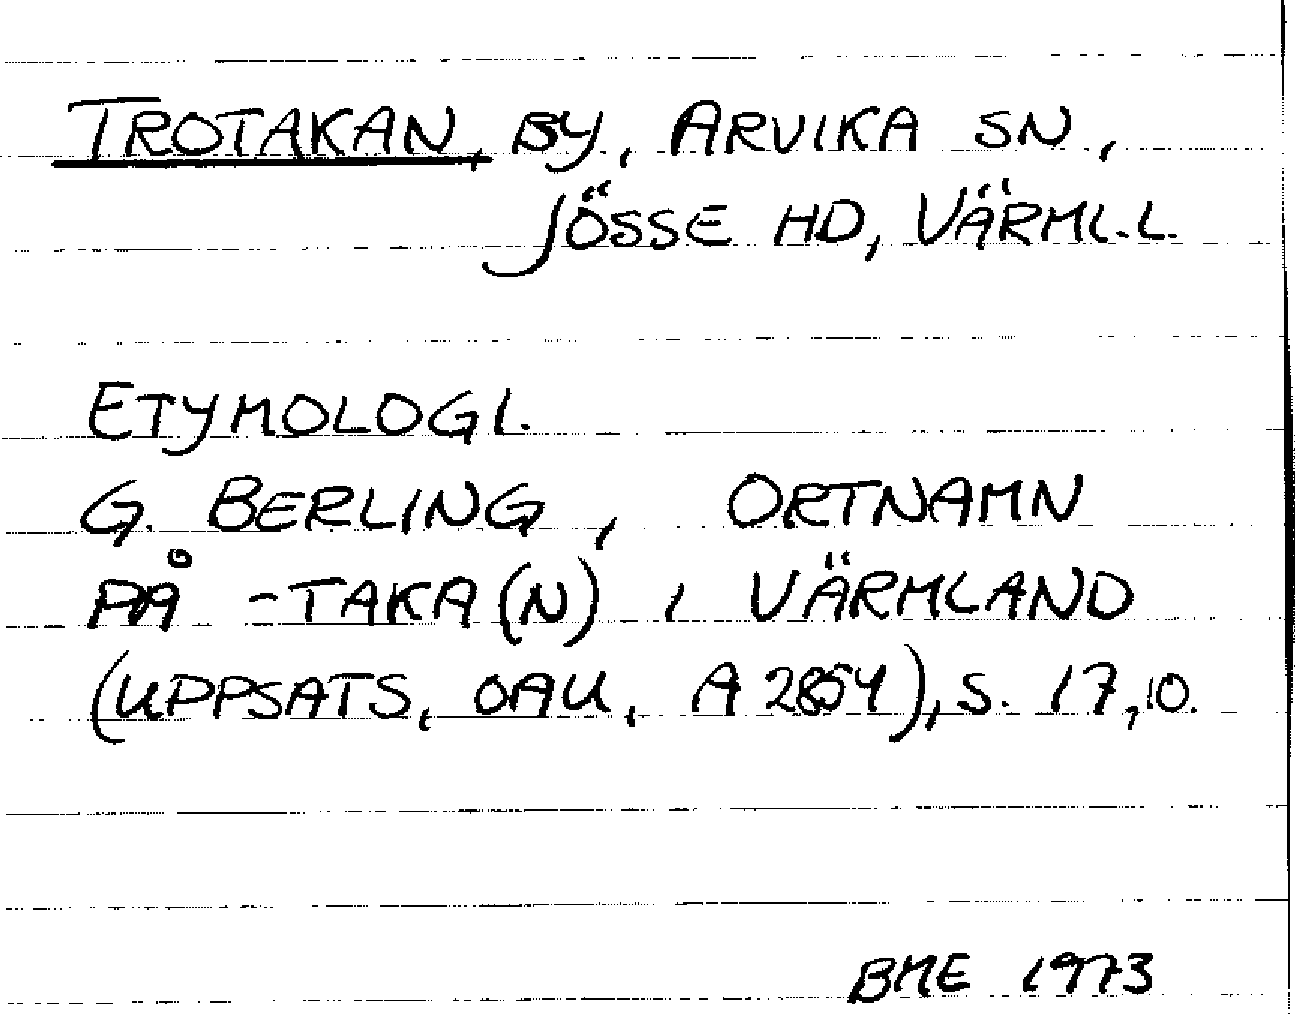 TROTAKAN, BY, ARVIKA SN,
JÖSSE HD, VÄRML.L.
ETYMOLOGI.
G. BERLING, ORTNAMN
PÅ -TAKA(N) I VÄRMLAND
(UPPSATS, OAU, A 2854), S. 17,10.
BME 1973